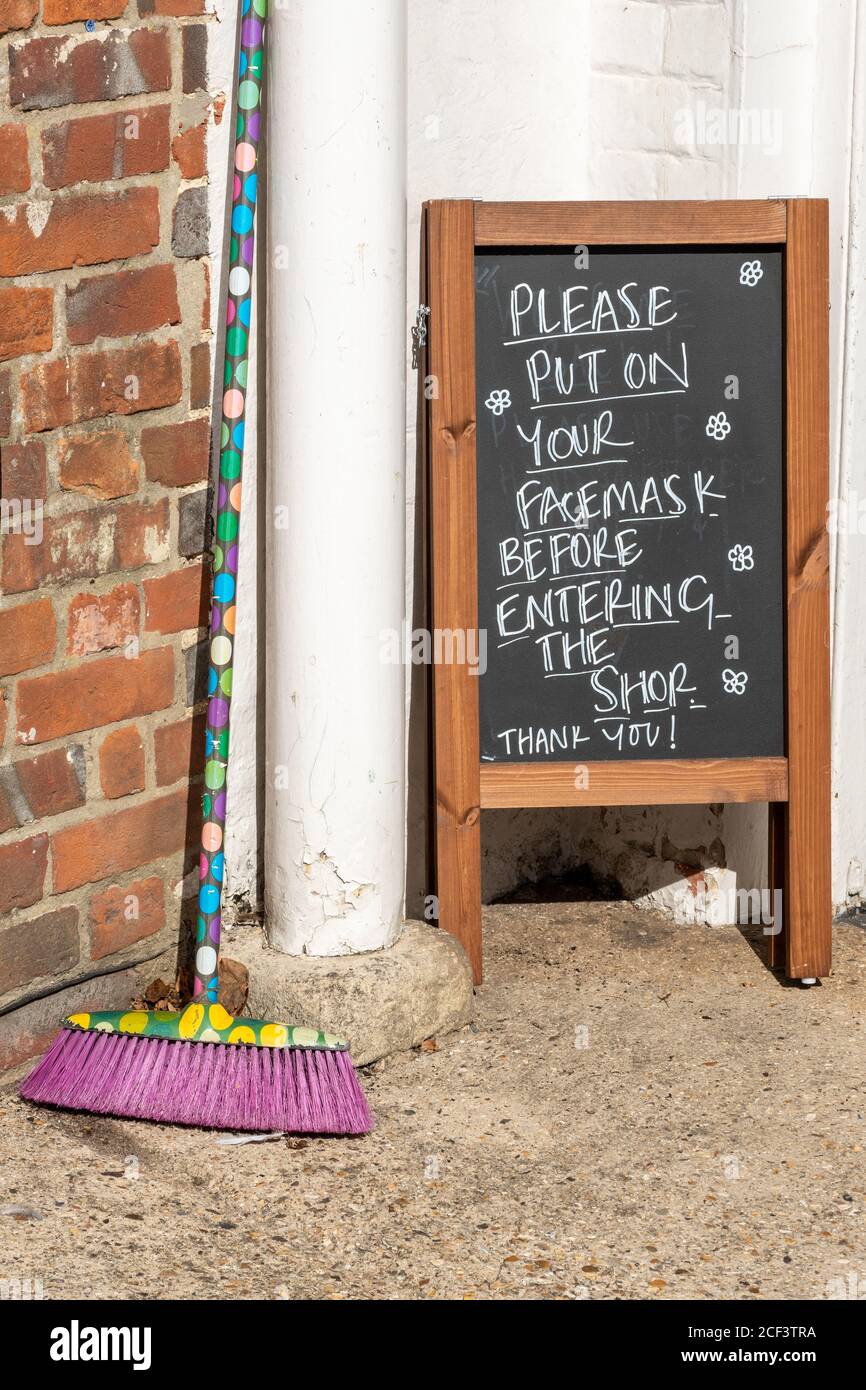 PLEASE
PUT ON
YOUR
FACEMASK
BEFORE
ENTERING
THE
SHOP.
THANK YOU!
alamy
Image ID: 2CF3TRA
www.alamy.com